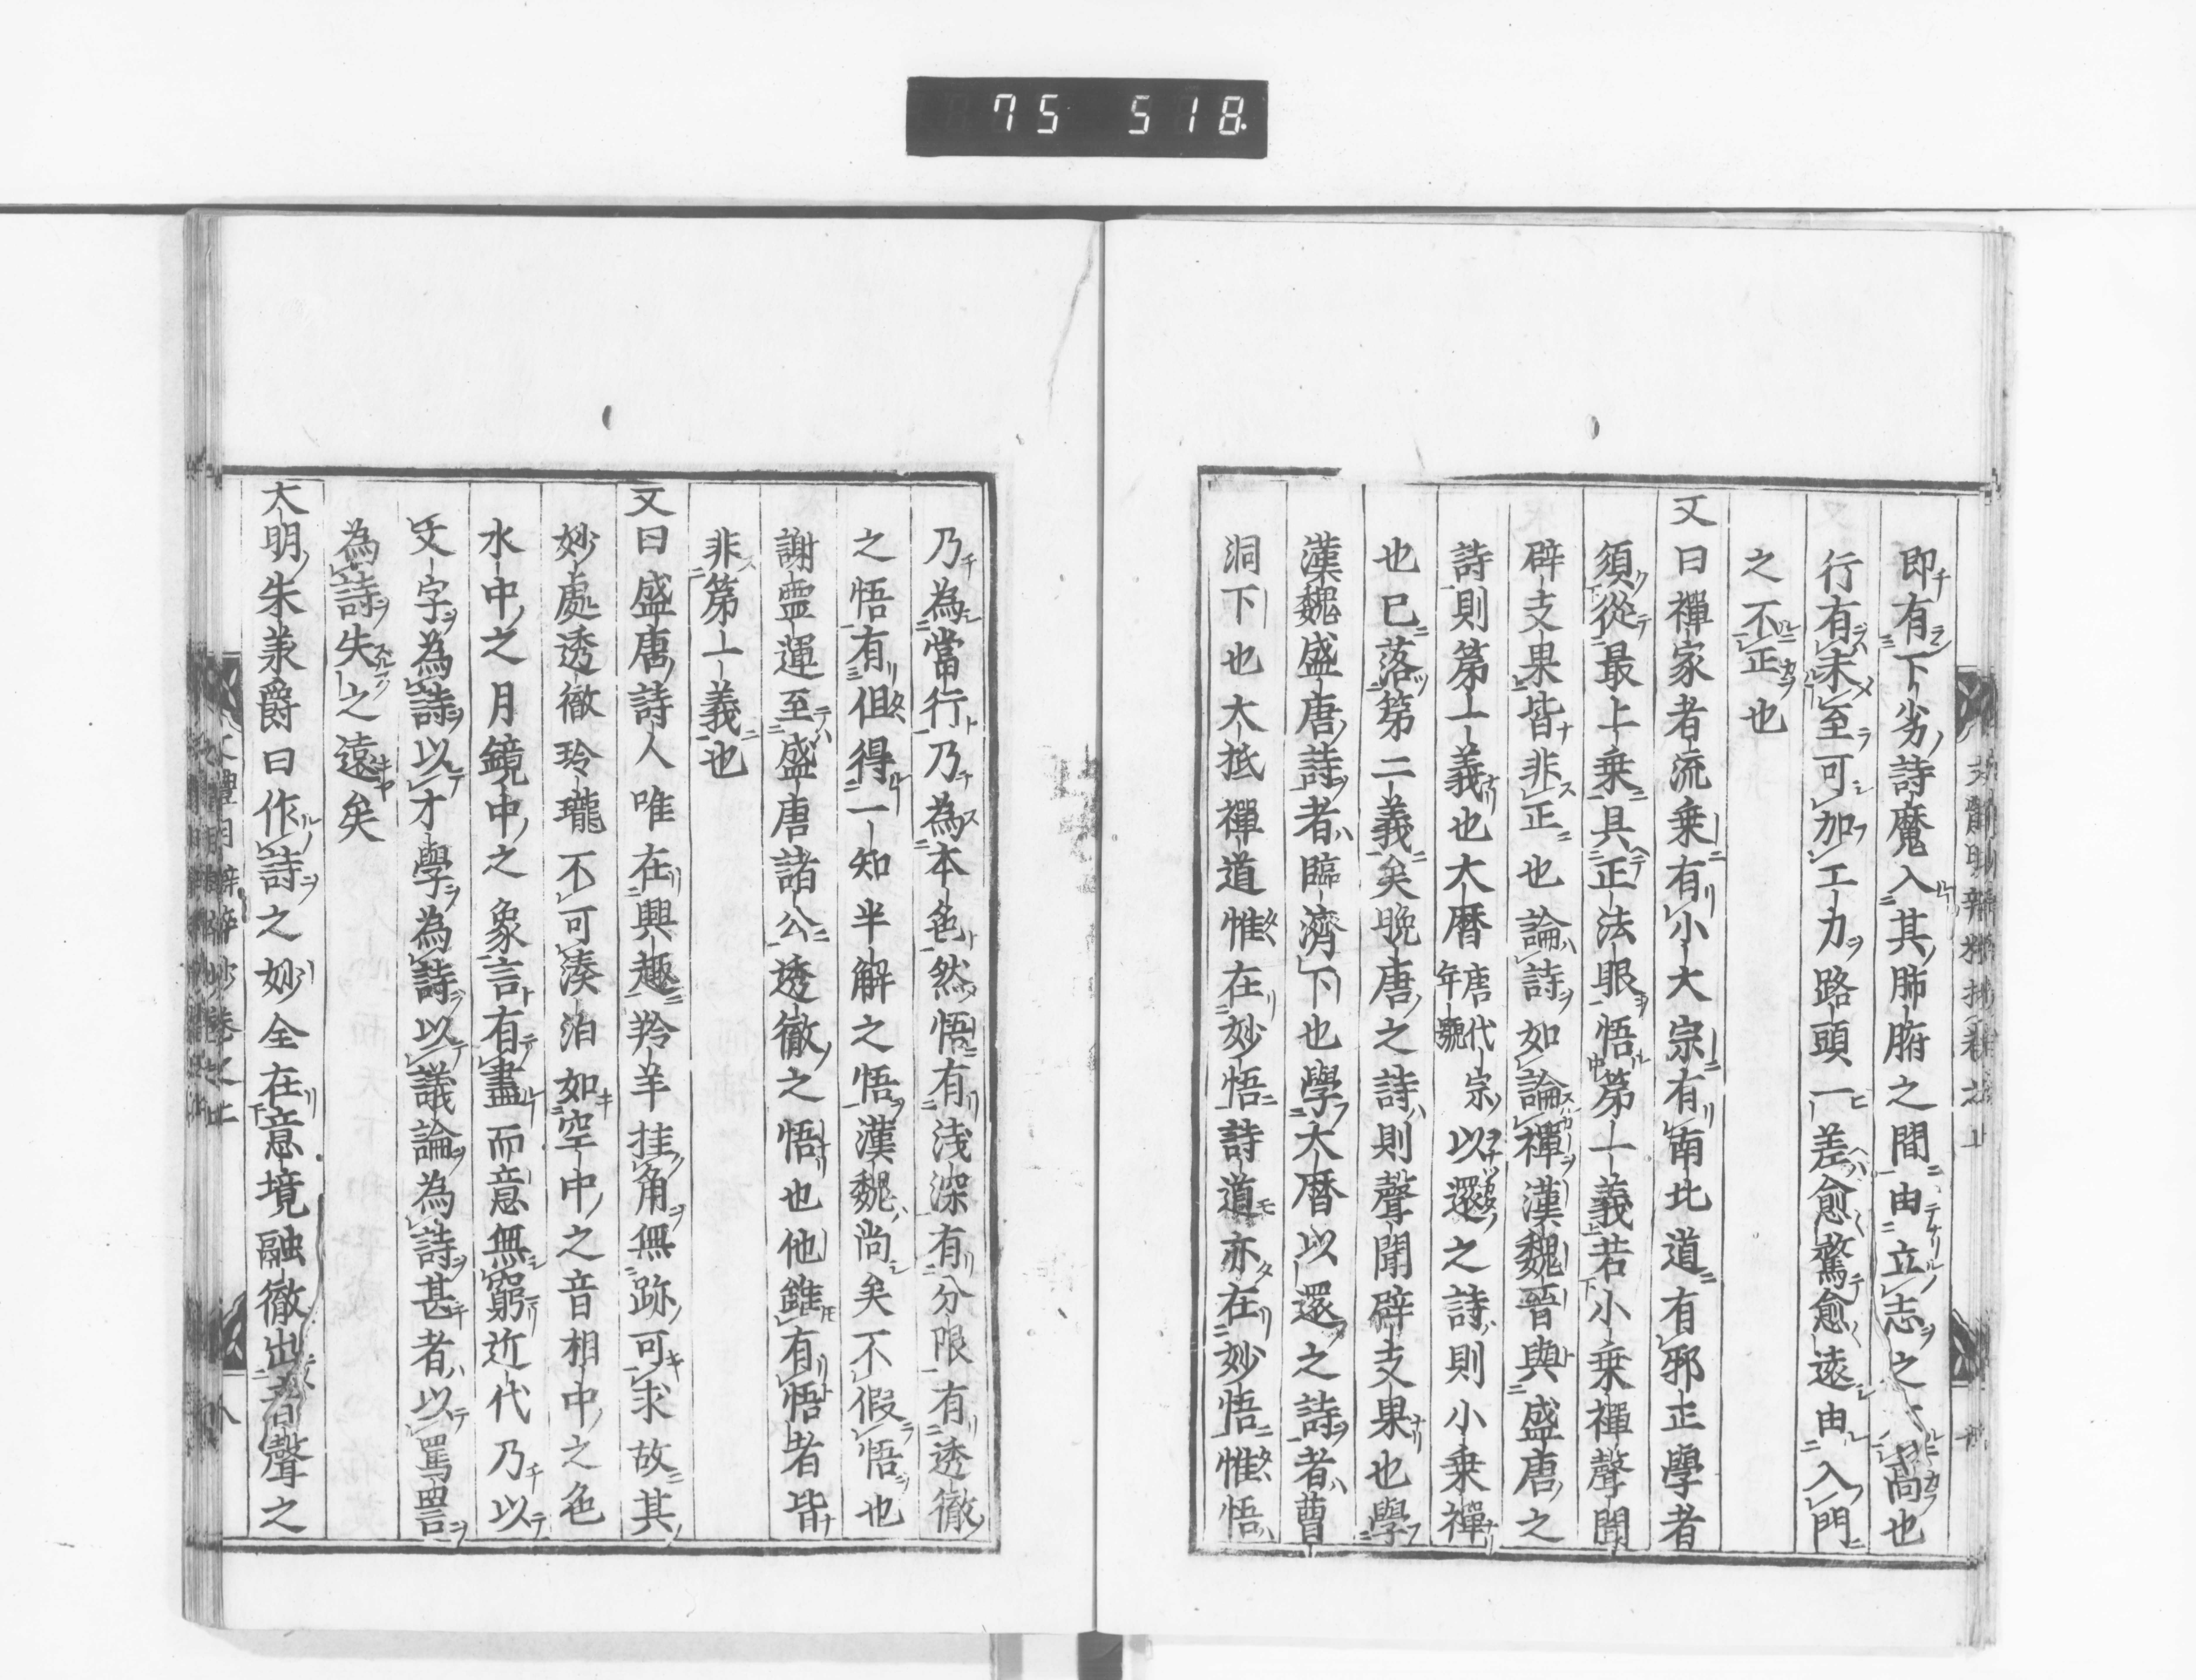 75 518
即有下劣詩魔入其肺腑之間由立志之不高也
行有未至可加工力路頭一差愈驁愈遠由入門
之不正也
又曰禪家者流乗有小大宗有南北道有邪正學者
須從最上乗具正法眼悟第一義若小乗禪聲聞
辟支果皆非正也論詩如論禪漢魏晉與盛唐之
詩則第一義也大曆唐代宗年號以還之詩則小乗禪
也已落第二義矣晚唐之詩則聲聞辟支果也學
漢魏盛唐詩者臨濟下也學大曆以還之詩者曹
洞下也大抵禪道惟在妙悟詩道亦在妙悟惟悟
乃為當行乃為本色然悟有浅深有分限有透徹
之悟有但得一知半解之悟漢魏尚矣不假悟也
謝霊運至盛唐諸公透徹之悟也他雖有悟者皆
非第一義也
又曰盛唐詩人唯在興趣羚羊挂角無跡可求故其
妙處透徹玲瓏不可湊泊如空中之音相中之色
水中之月鏡中之象言有盡而意無窮近代乃以
文字為詩以才學為詩以議論為詩甚者以罵詈
為詩失之遠矣
大明朱羕爵曰作詩之妙全在意境融徹出音聲之